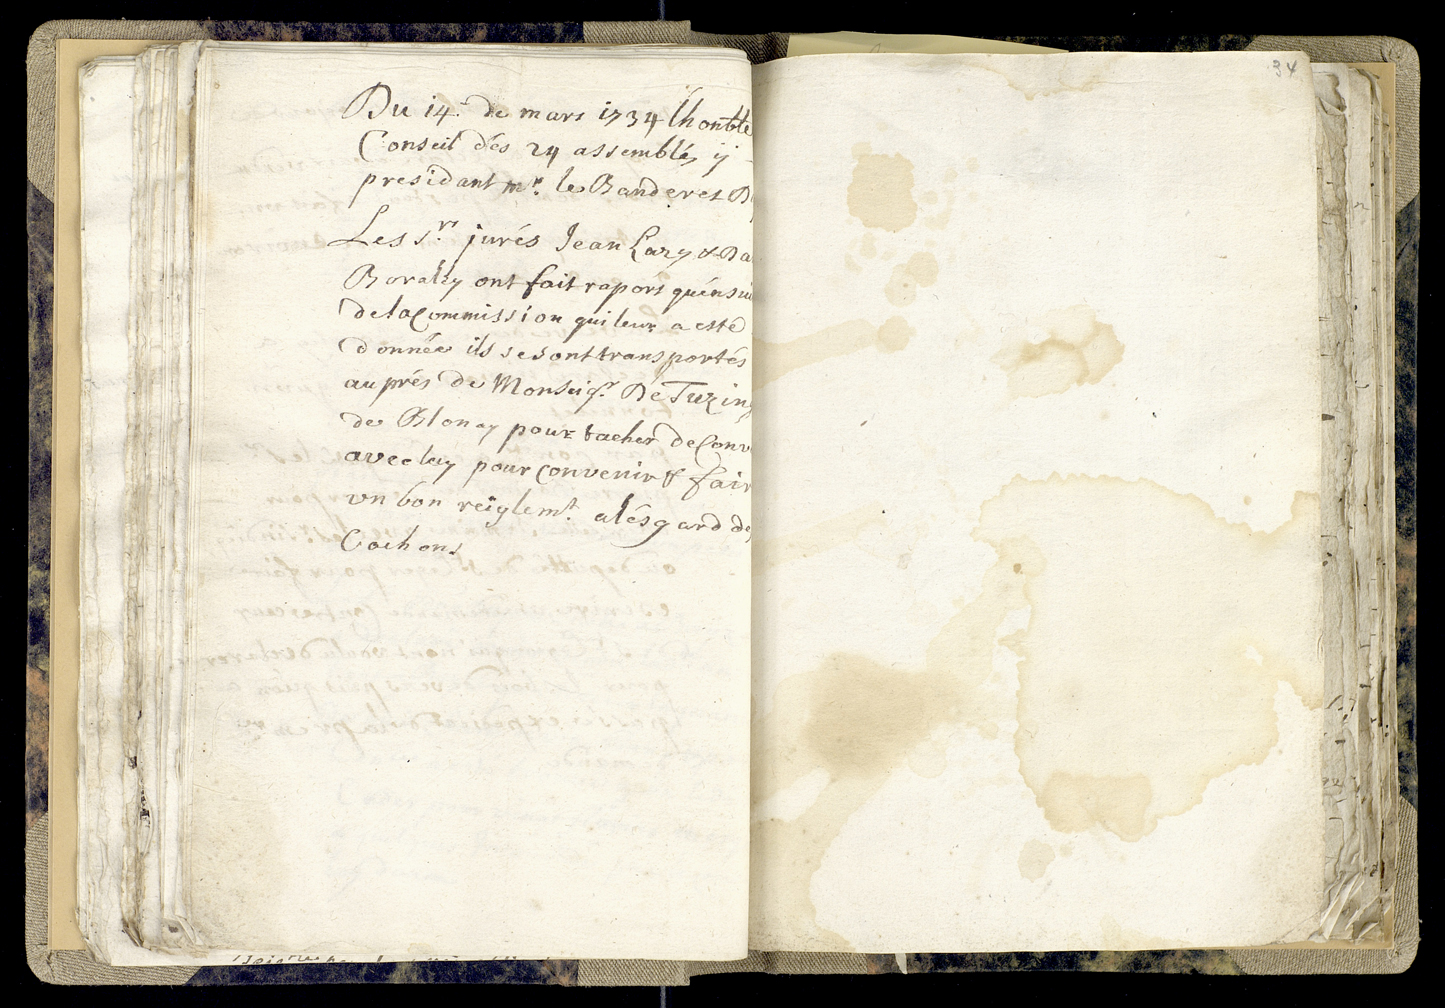 Du 14.e de mars 1734 lhonble
Conseil des 24 assemblés ÿ
presidant mr. le Banderet
Les srs jurés Jean Lazy & Da
Boraley ont fait raport quensui
de la Commission qui leur a esté
donnée ils se sont transportés
auprés de Monseigr. De Tuzing
de Blonay pour tacher de Conv
avec luy pour convenir & fair
un bon reiglemt. a lésgard des
Cochons
34